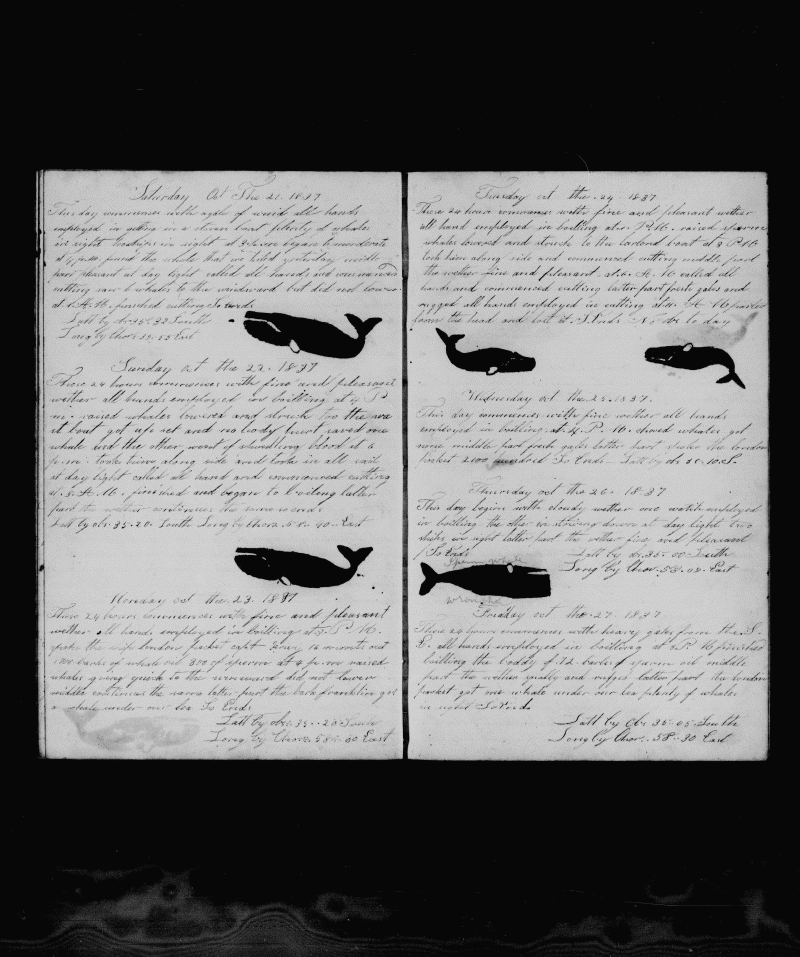 Saturday Oct The 21. 1837
This day commences with a gale of wind all hands
employed in getting in a stove boat plenty of whales
in sight
at 4 found the whale that we killed yesterday
part pleasant at day light called all hands and commenced
cutting saw whales to the windward but did not lower
at 11. A. M. finished cutting So ends
Latt by obs 35-32 South
Long by Chor East
Sunday oct the 22. 1837
These 24 hours commences with fine and pleasant
wether all hands employed in boilling at 4 P
m. raised whales lowered and struck too the
boat got up set and no body hurt saved one
whale and the other went of spouting blood at 6
p. m. took him along side and took in all sail
at day light called all hand and commenced cutting
at 8. A. M. finished and began to boiling latter
part the wether continues the same so ends
Latt by obs. 35-20. South Long by Chor. 58-40-East
Monday oct the 23. 1837
These 24 hours commences with fine and pleasant
wether all hands employed in boilling at 3. P. M.
spoke the ship london packet capt 16 months out
barls of whale oil 300 of sperm at 4 p. m raised
whales going quick to the windward did not lower
middle continues the same latter part the bark franklin got
a whale under our lea So Ends
Latt by obs. 35--20 South
Long by Chor. 58--00 East
Tuesday oct the 24. 1837
These 24 hours commences with fine and pleasant wether
all hand employed in boilling at P.M. raised sperm
whales lowered and struck to the larbord boat at 3 P. M.
took him along side and commenced cutting middle part
the wether fine and pleasant. at 6. A. M. called all
hands and commenced cutting latter part fresh gales and
rugged all hands employed in cutting at A. M. parted
from the head and lost it So Ends No obs to day
Wednesday oct the 25. 1837.
This day commences with fine wether all hands
employed in boilling at 4. P. M. chased whales got
none middle part fresh gales latter part spoke the london
packet 2100 hundred So Ends - Latt by obs 35-10. S.
Thursday oct the 26. 1837
This day begins with cloudy wether one watch employed
in boilling the other in stowing down at day light two
ships in sight latter part the wether fine and pleasant
So Ends
Latt by obs. 35-00-South
Long by Chor. 58-00-East
Sperm whale
Friday oct the 27. 1837
These 24 hours commences with heavy gales from the S.
E. all hands employed in boilling at P. M. finished
boilling the boddy of 72 barls of sparm oil middle
part the wether squally and rugged latter part the london
packet got one whale under our lea plenty of whales
in sight So Ends
Latt by Obs. 35-05-South
Long by Chor. 58-30 East